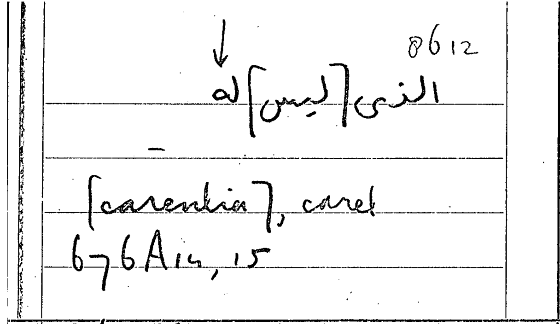 8612
الذى [ليس] له
[carentia], caret
676A14, 15